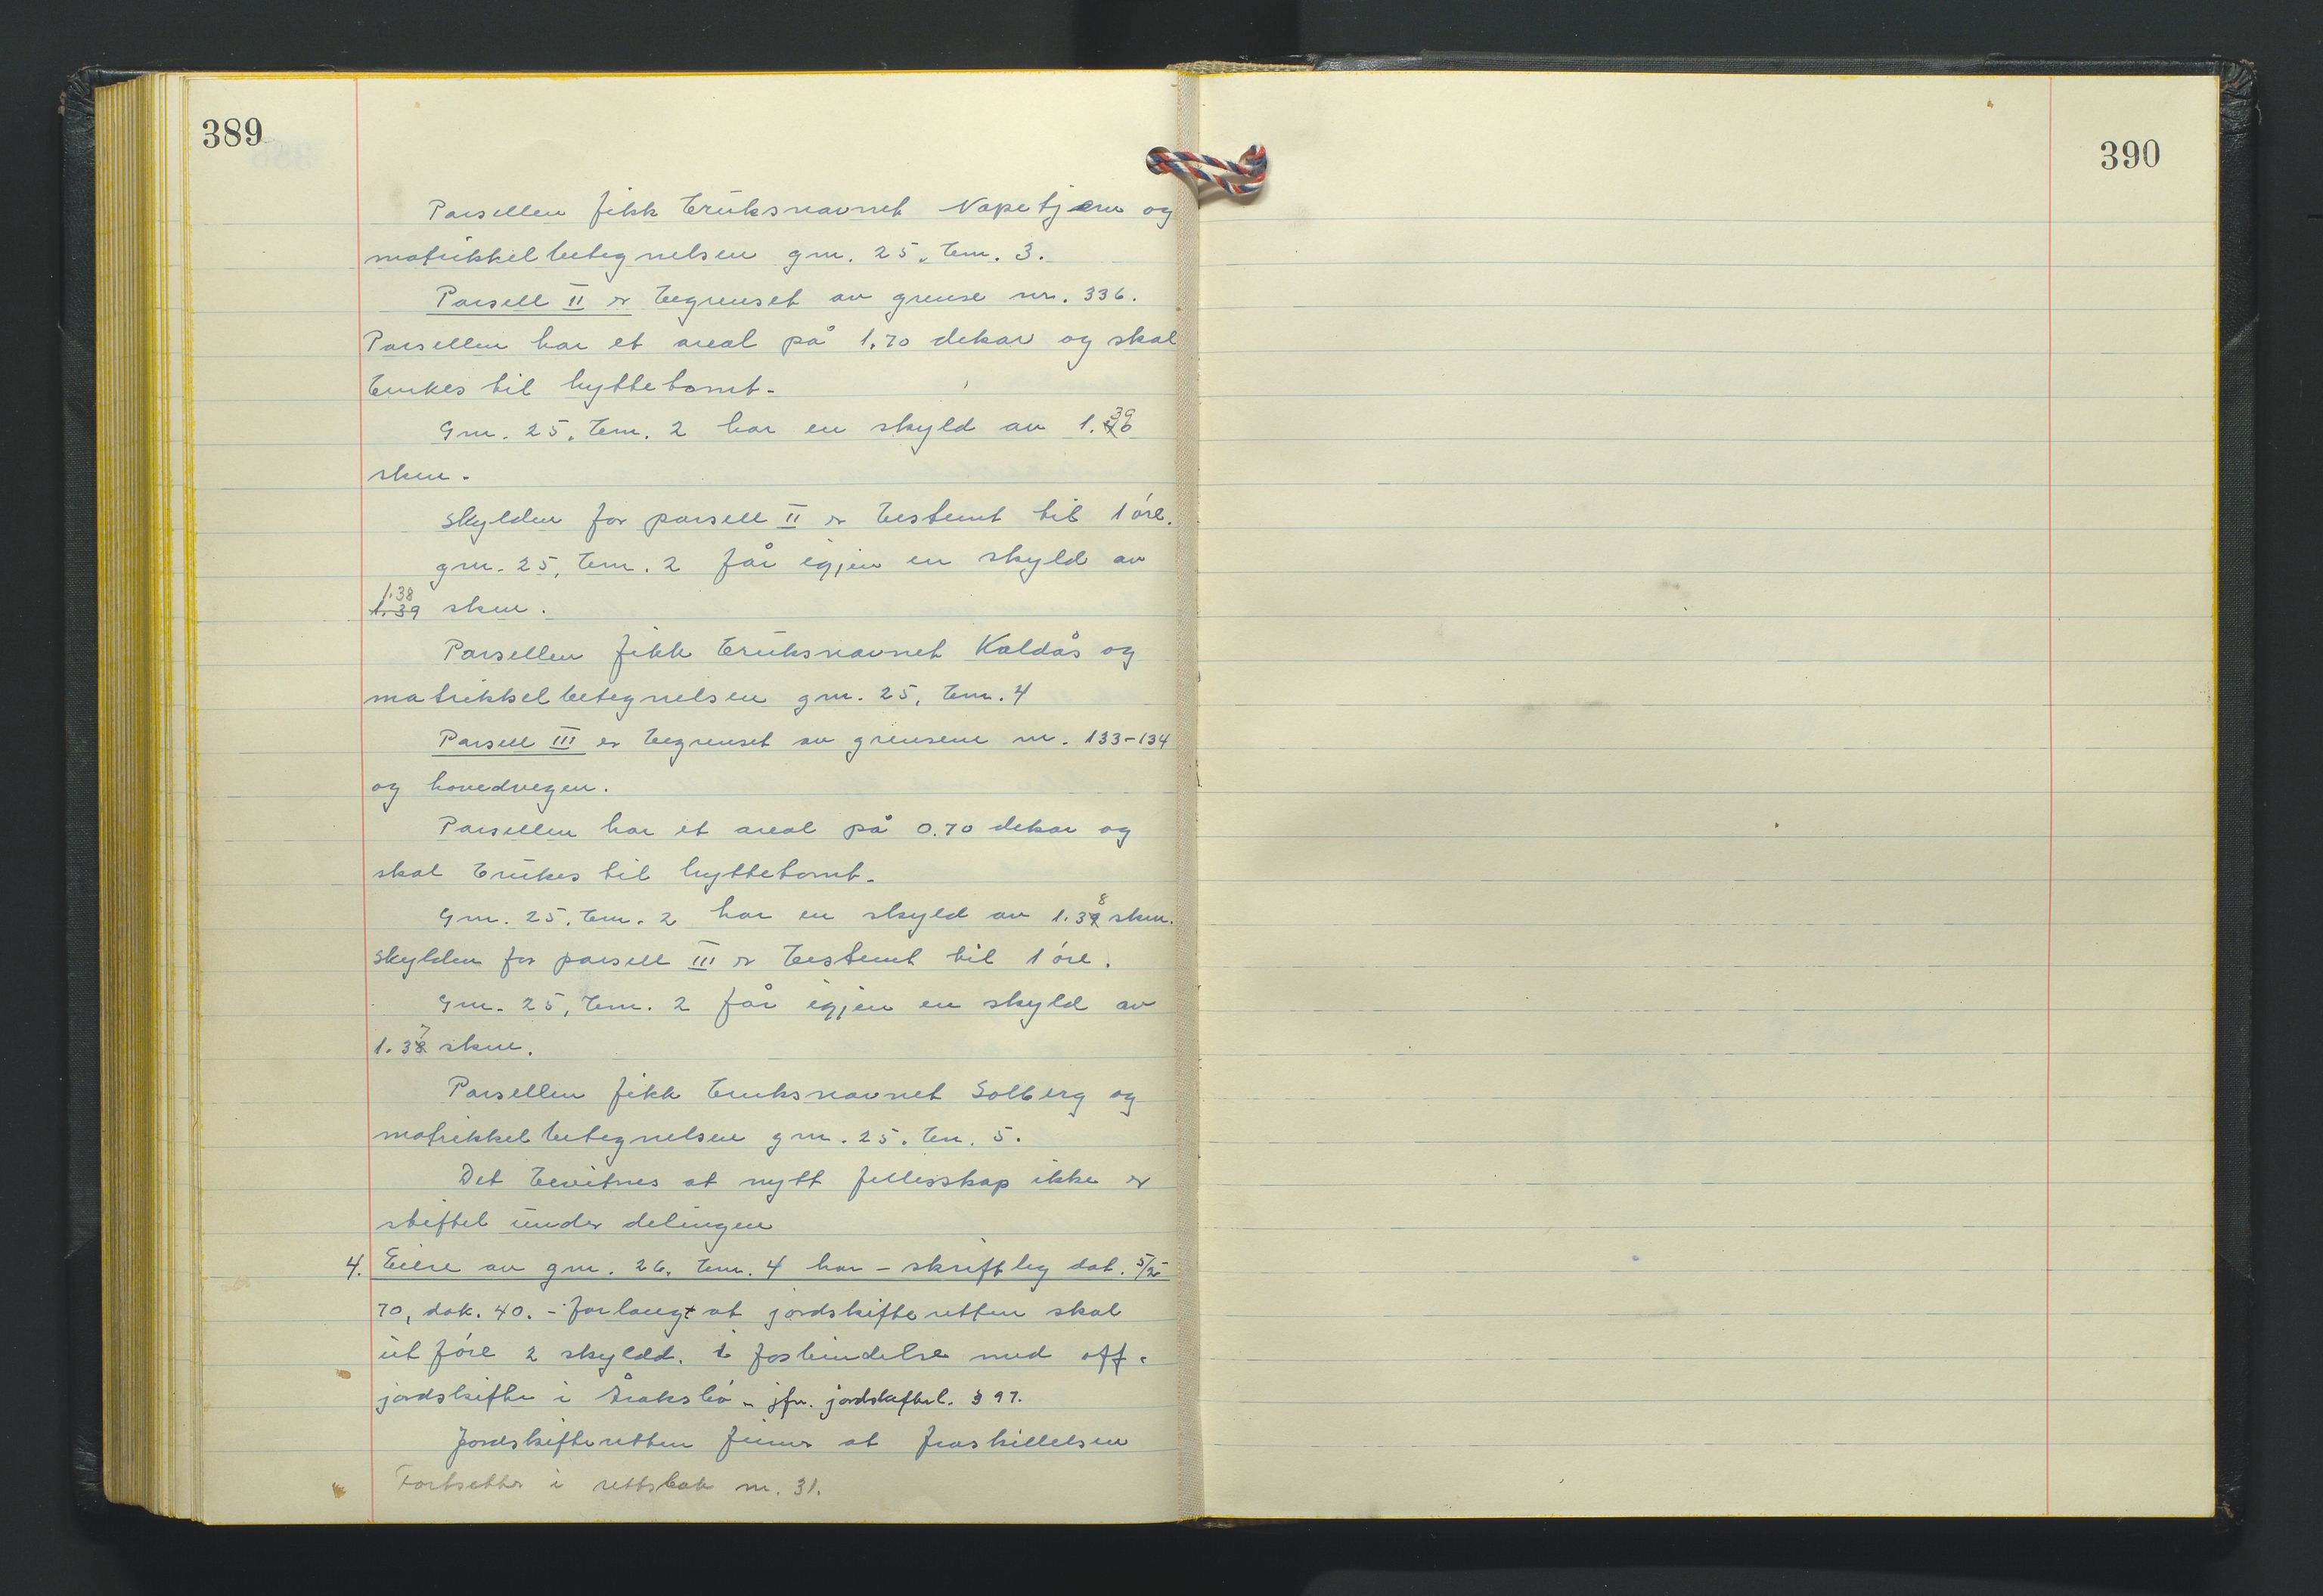 389
Parsellen fikk bruksnavnet Napetjern og
matrikkelbetegnelsen gnr. 25, bnr. 3.
Parsell II er begrenset av grense nr. 336.
Parsellen har et areal på 1,70 dekar og skal
brukes til hyttetomt.
Gnr. 25, bnr. 2 har en skyld av 1.39
skm.
Skylden for parsell II er bestemt til 1 øre.
gnr. 25, bnr. 2 får igjen en skyld av
1.38
1.39 skm.
Parsellen fikk bruksnavnet Kaldås og
matrikkelbetegnelsen gnr. 25, bnr. 4
Parsell III er begrenset av grensene nr. 133-134
og hovedvegen.
Parsellen har et areal på 0.70 dekar og
skal brukes til hyttetomt.
Gnr. 25, bnr. 2 har en skyld av 1.38 skm.
Skylden for parsell III er bestemt til 1 øre.
Gnr. 25, bnr. 2 får igjen en skyld av
1.37 skm.
Parsellen fikk bruksnavnet Solberg og
matrikkelbetegnelsen gnr. 25, bnr. 5.
Det bevitnes at nytt fellesskap ikke er
stiftet under delingen
4. Eiere av gnr. 26, bnr. 4 har - skriftleg dat. 5/5
70, dok. 40. - forlangt at jordskifteretten skal
utføre 2 skyldd. i forbindelse med off.
jordskifte i - jfr. jordskiftel. § 97.
Jordskifteretten finner at fraskillelsen
Fortsetter i rettsbok nr. 31.
390